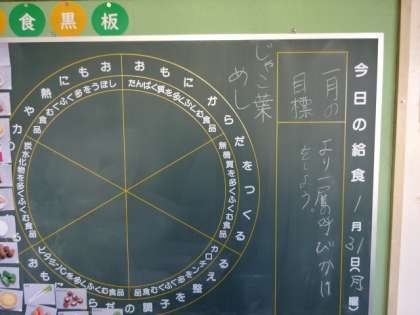 食黒板
今日の給食 1月31日(月曜)
一月の
目標
より一層の呼びかけ
をしよう。
じゃこ葉
めし
おもにからだをつくる
おもにからだの調子を整える
おもに熱や力
たんぱく質を多くふくむ食品
無機質を多くふくむ食品
カロチンを多くふくむ食品
ビタミンCを多くふくむ食品
炭水化物を多くふくむ食品
しぼうを多くふくむ食品